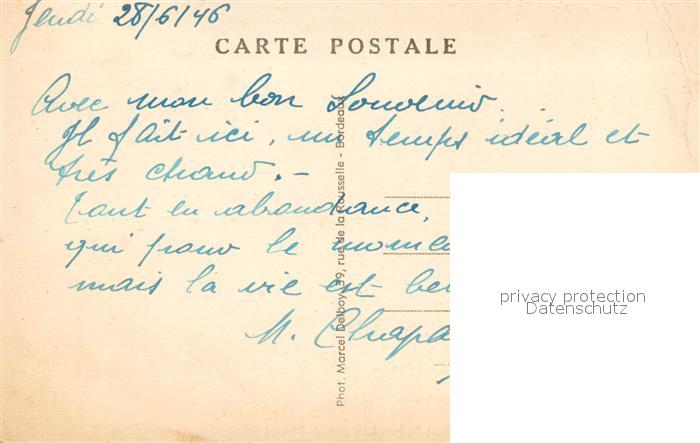 Jeudi 28/6/46
CARTE POSTALE
Avec mon bon Souvenir.
Il fait ici, un temps idéal et
très chaud. -
Tout en abondance,
qui pour le
mais la vie est
M.
Phot. Marcel Delboy, 39, rue de la Rousselle - Bordeaux
privacy protection
Datenschutz